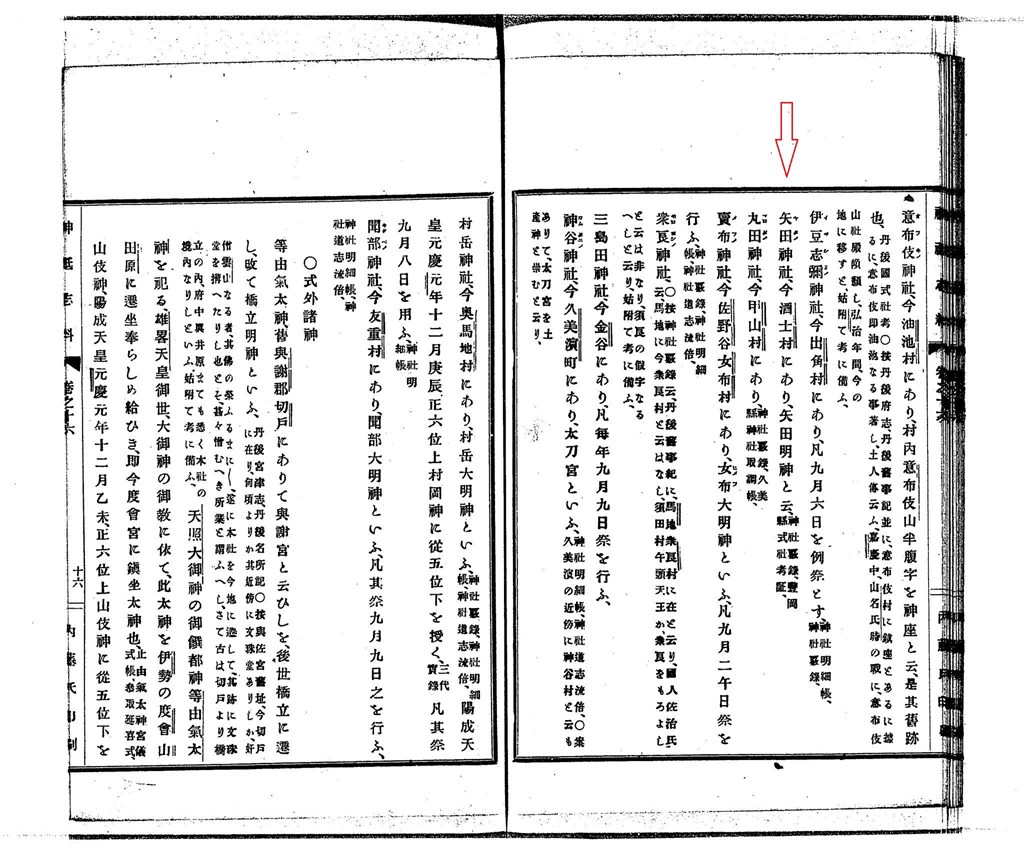 意布伎神社、今池池村にあり、村内意布伎山半腹字を神座と云、是其舊跡
也、丹後國式社考〇按丹後府志、丹後舊事記並に、意布伎村に鎮座とあるに據
るに、意布伎即油池なる事著し、土人傳云ふ、嘉慶中、山名氏時の戰に、意布伎
山社殿頽額し、弘治年間、今の
地に移すと、姑附て考に備ふ、
伊豆志彌神社、今出角村にあり、凡九月六日を例祭とす、神社明細帳、
神社覈錄、
矢田神社、今酒士村にあり、矢田明神と云、神社覈錄、豐岡
縣式社考証、
丸田神社、今甲山村にあり、神社覈錄、久美
縣神社取調帳、
賣布神社、今佐野谷女布村にあり、女布大明神といふ、凡九月二午日祭を
行ふ、神社覈錄、神社明細
帳、神社道志流倍、
衆良神社、〇按神社覈錄云、丹後舊事紀に、馬地衆良村に在と云り、國人佐治氏
云、馬地に今衆良村と云はなし、須田村午頭天王か、衆良をもろよし
と云は非なり、須良の假字なる
へしと云り、姑附て考に備ふ、
三島田神社、今金谷にあり、凡每年九月九日祭を行ふ、
神谷神社、今久美濵町にあり、太刀宮といふ、神社明細帳、神社道志流倍、〇案
久美濵の近傍に神谷村と云も
ありて、太刀宮を土
產神と崇むと云り、
村岳神社、今奥馬地村にあり、村岳大明神といふ、神社覈錄、神社明細
帳、神社道志流倍、陽成天
皇元慶元年十二月庚辰、正六位上村岡神に從五位下を授く、三代
實錄凡其祭
九月八日を用ふ、神社明
細帳
聞部神社、今友重村にあり、聞部大明神といふ、凡其祭九月九日之を行ふ、
神社明細帳、神
社道志流倍、
〇式外諸神
等由氣太神、舊與謝郡切戶にありて與謝宮と云ひしを、後世橋立に遷
し、改て橋立明神といふ、丹後宮津志、丹後名所記〇按與佐宮舊址、今切戶
に在り、何頃よりか其近傍に文珠堂ありしか、奸
僧雲山なる者其佛の榮ふるまに〱、遂に本社を今地に遷して、其跡に文珠
堂を搆へたりし也とそ、甚々憎むへき所業と謂ふへし、さて古は切戶より橋
立の內、府中眞井原まても悉く本社の
境內なりしといふ、姑附て考に備ふ、天照大御神の御饌都神等由氣太
神を祀る、雄畧天皇御世、大御神の御敎に依て、此太神を伊勢の度會山
田原に遷坐奉らしめ給ひき、即今度會宮に鎭坐太神也、止由氣太神宮儀
式帳、參取延喜式、
山伎神、陽成天皇元慶元年十二月乙未、正六位上山伎神に從五位下を
神祇志料
卷之十六
十六
內藤氏印刷